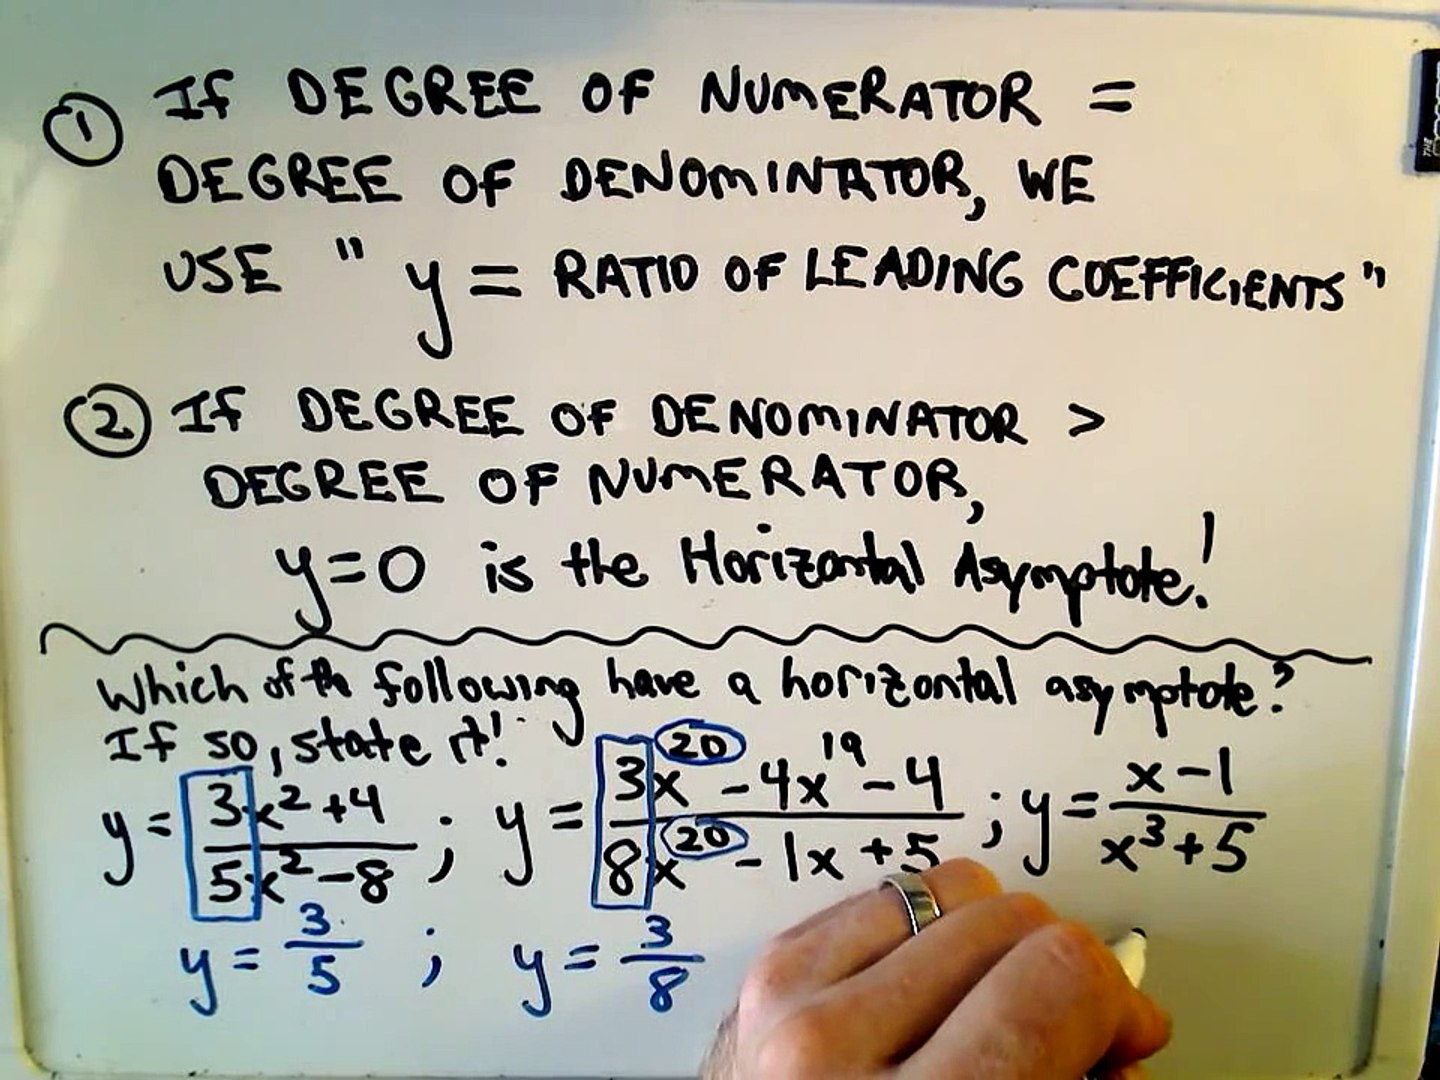 ① If DEGREE OF NUMERATOR =
DEGREE OF DENOMINATOR, WE
USE " y = RATIO OF LEADING COEFFICIENTS"
② If DEGREE OF DENOMINATOR >
DEGREE OF NUMERATOR,
y=0 is the Horizontal Asymptote!
Which of the following have a horizontal asymptote?
If so, state it!
y = (3x² + 4)/(5x² - 8) ; y = (3x²⁰ - 4x¹⁹ - 4)/(8x²⁰ - 1x + 5) ; y = (x - 1)/(x³ + 5)
y = 3/5 ; y = 3/8